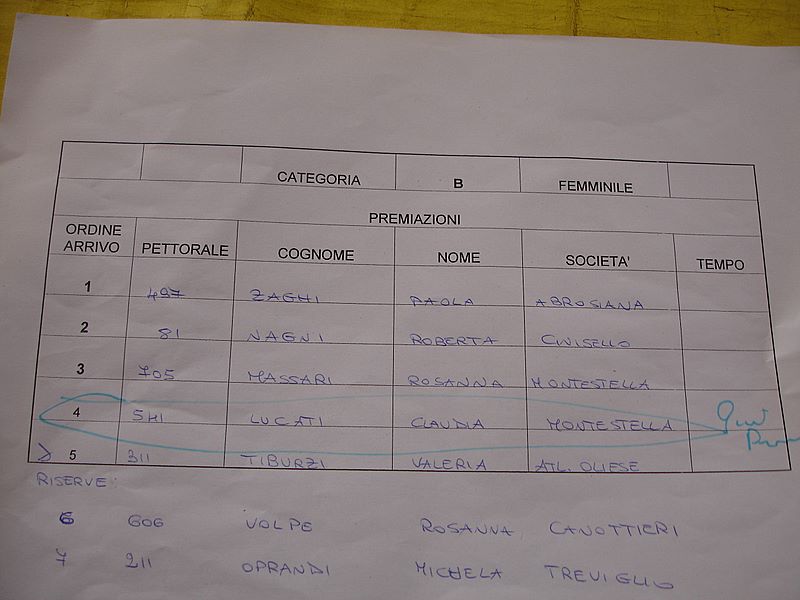 CATEGORIA B FEMMINILE
PREMIAZIONI
ORDINE ARRIVO PETTORALE COGNOME NOME SOCIETA' TEMPO
1 497 ZAGHI PAOLA ABROSIANA
2 81 NAGNI ROBERTA CINISELLO
3 705 MASSARI ROSANNA MONTESTELLA
4 541 LUCATI CLAUDIA MONTESTELLA
5 311 TIBURZI VALERIA ATL. OLIESE
RISERVE:
6 606 VOLPE ROSANNA CANOTTIERI
7 211 OPRANDI MICHELA TREVIGLIO